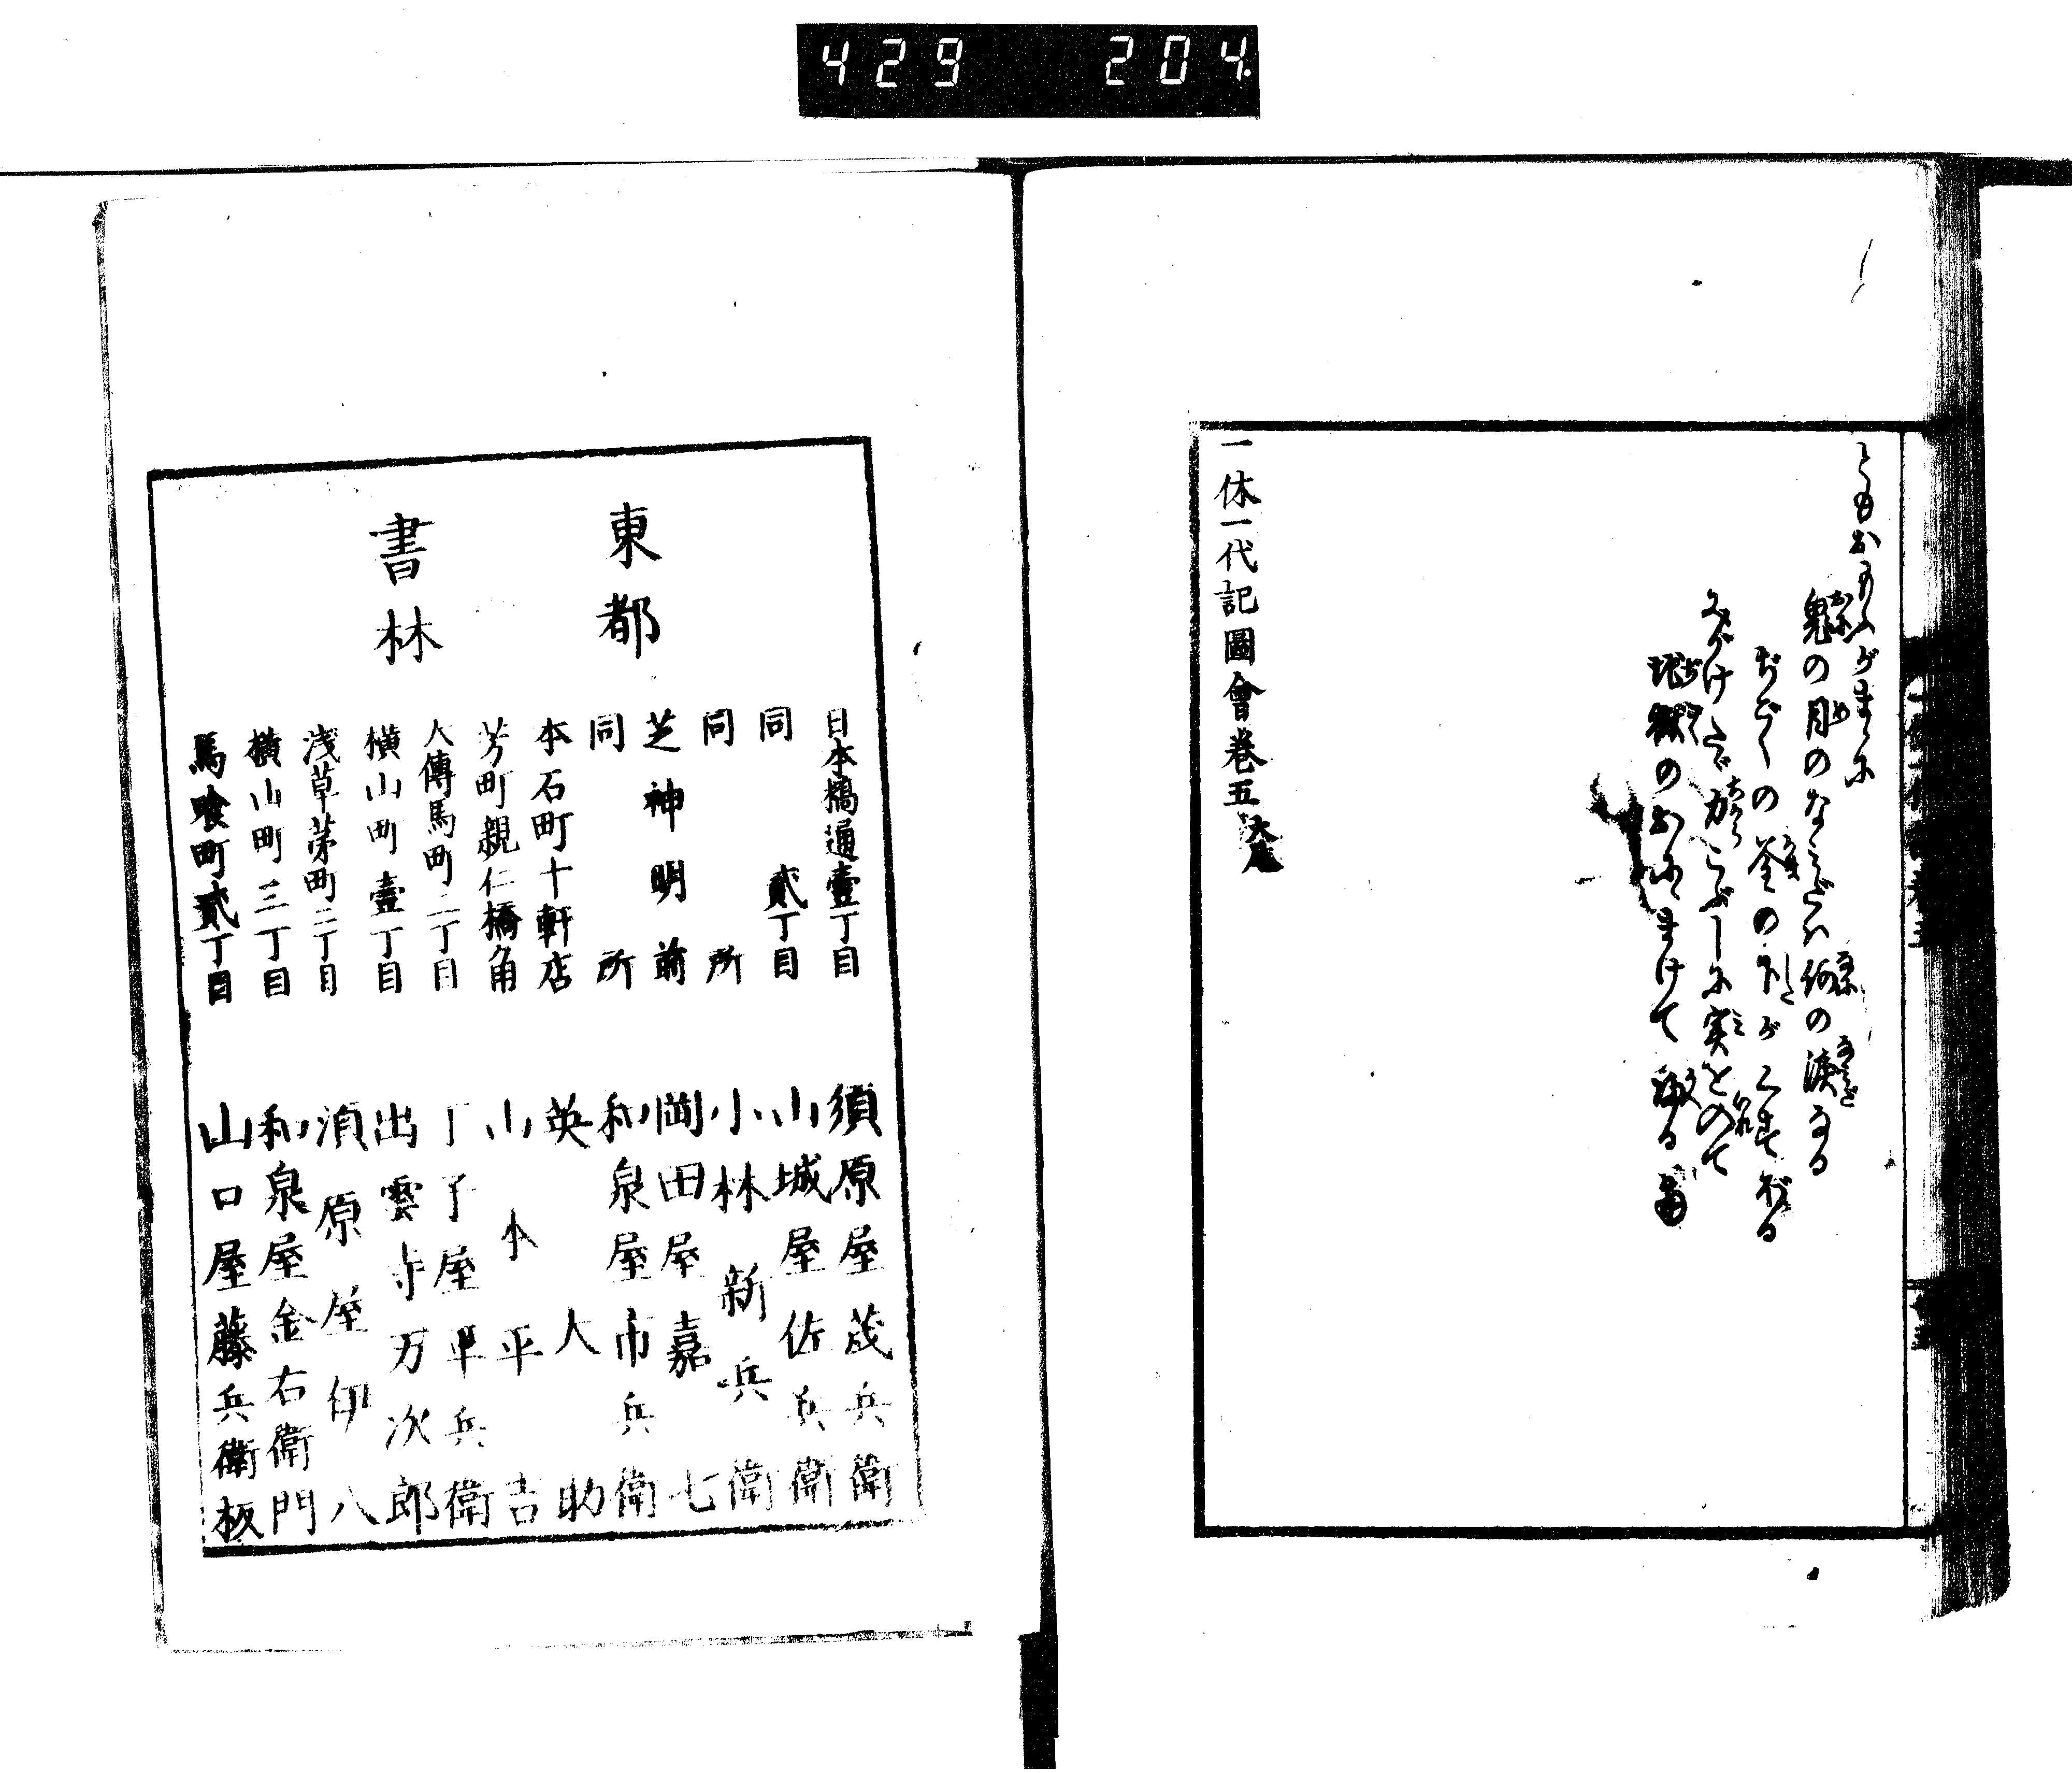 429 204
ともおもふがまゝに
鬼の目のなみだハ何の涙なる
ぢごくの釜の下がくすぼる
地獄のおにゝまけて
一休一代記圖會巻五大尾
東都
書林
日本橋通壹丁目 須原屋茂兵衛
同 貳丁目 山城屋佐兵衛
同所 小林新兵衛
芝神明前 岡田屋嘉七
同所 和泉屋市兵衛
本石町十軒店 英大助
芳町親仁橋角 山本平吉
大傳馬町二丁目 丁子屋平兵衛
横山町壹丁目 出雲寺万次郎
浅草茅町二丁目 須原屋伊八
横山町三丁目 和泉屋金右衛門
馬喰町貳丁目 山口屋藤兵衛板